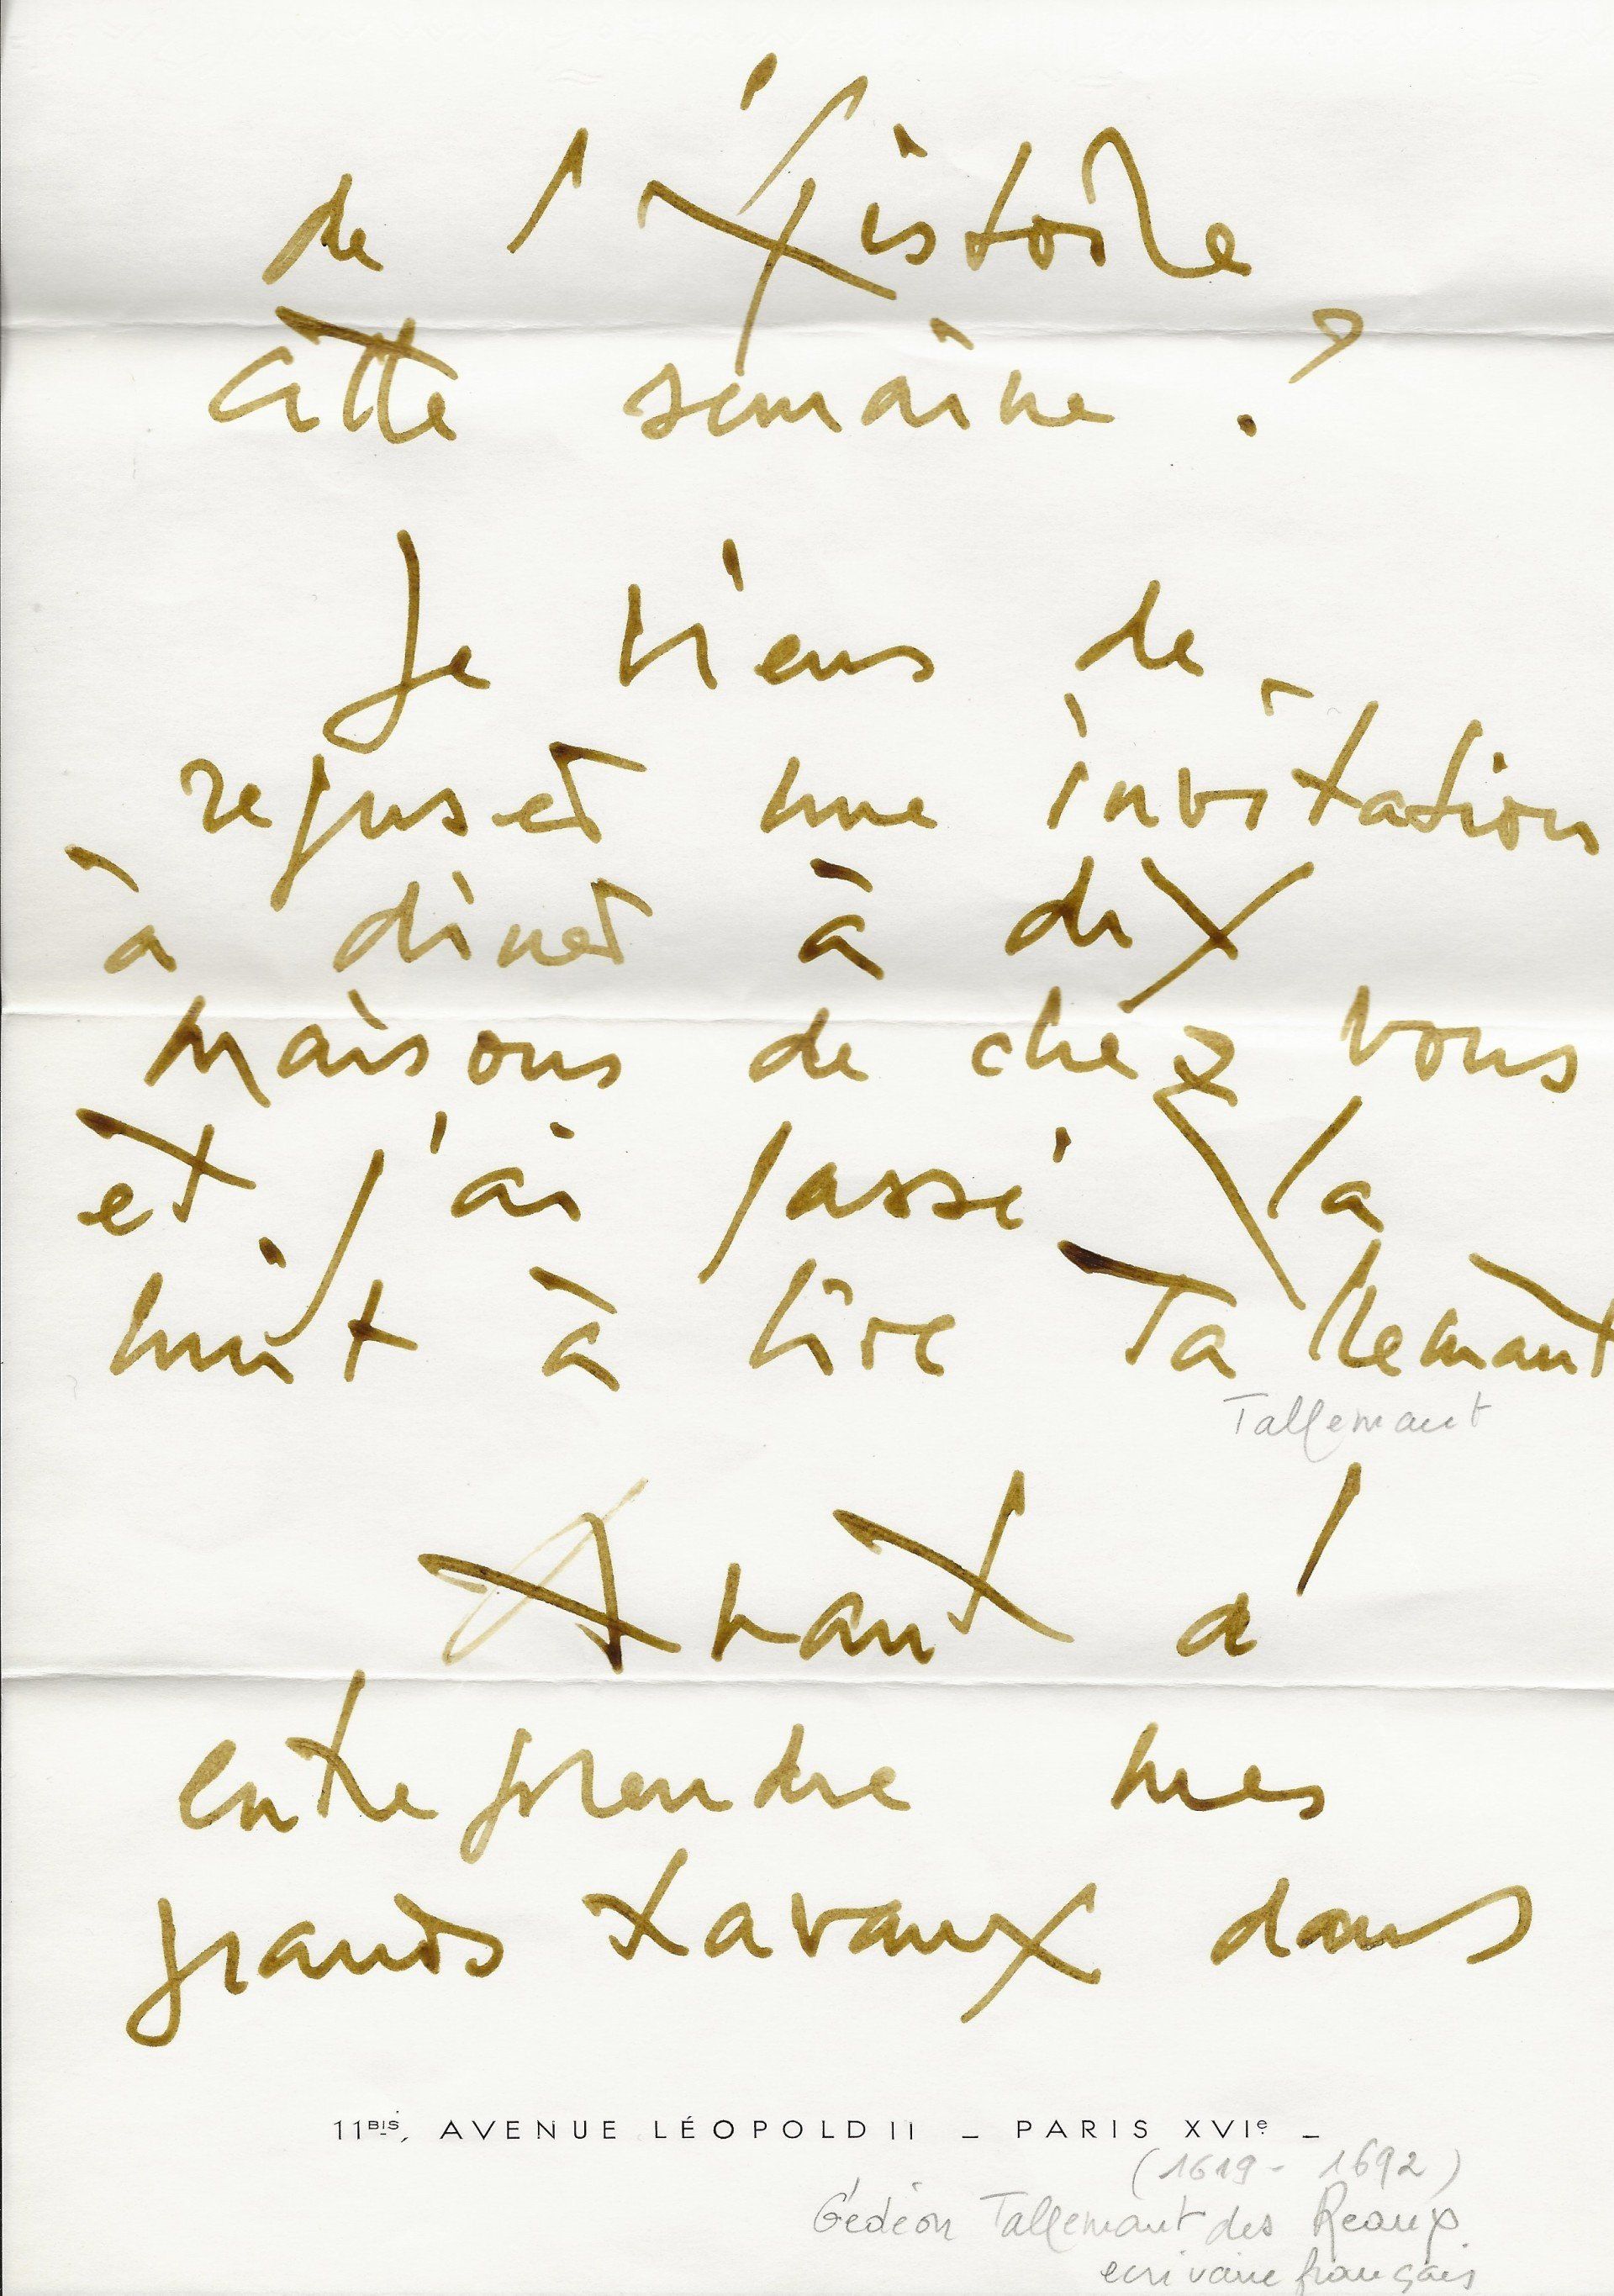 de l'Histoire
cette semaine ?
Je viens de
refuser une invitation
à diner à dix
maisons de chez vous
et j'ai passé la
nuit à lire Tallemant
Tallemant
Avant d'
entreprendre mes
grands travaux dans
11BIS, AVENUE LÉOPOLD II _ PARIS XVIe _
(1619 - 1692)
Gédéon Tallemant des Reaux
ecrivain français